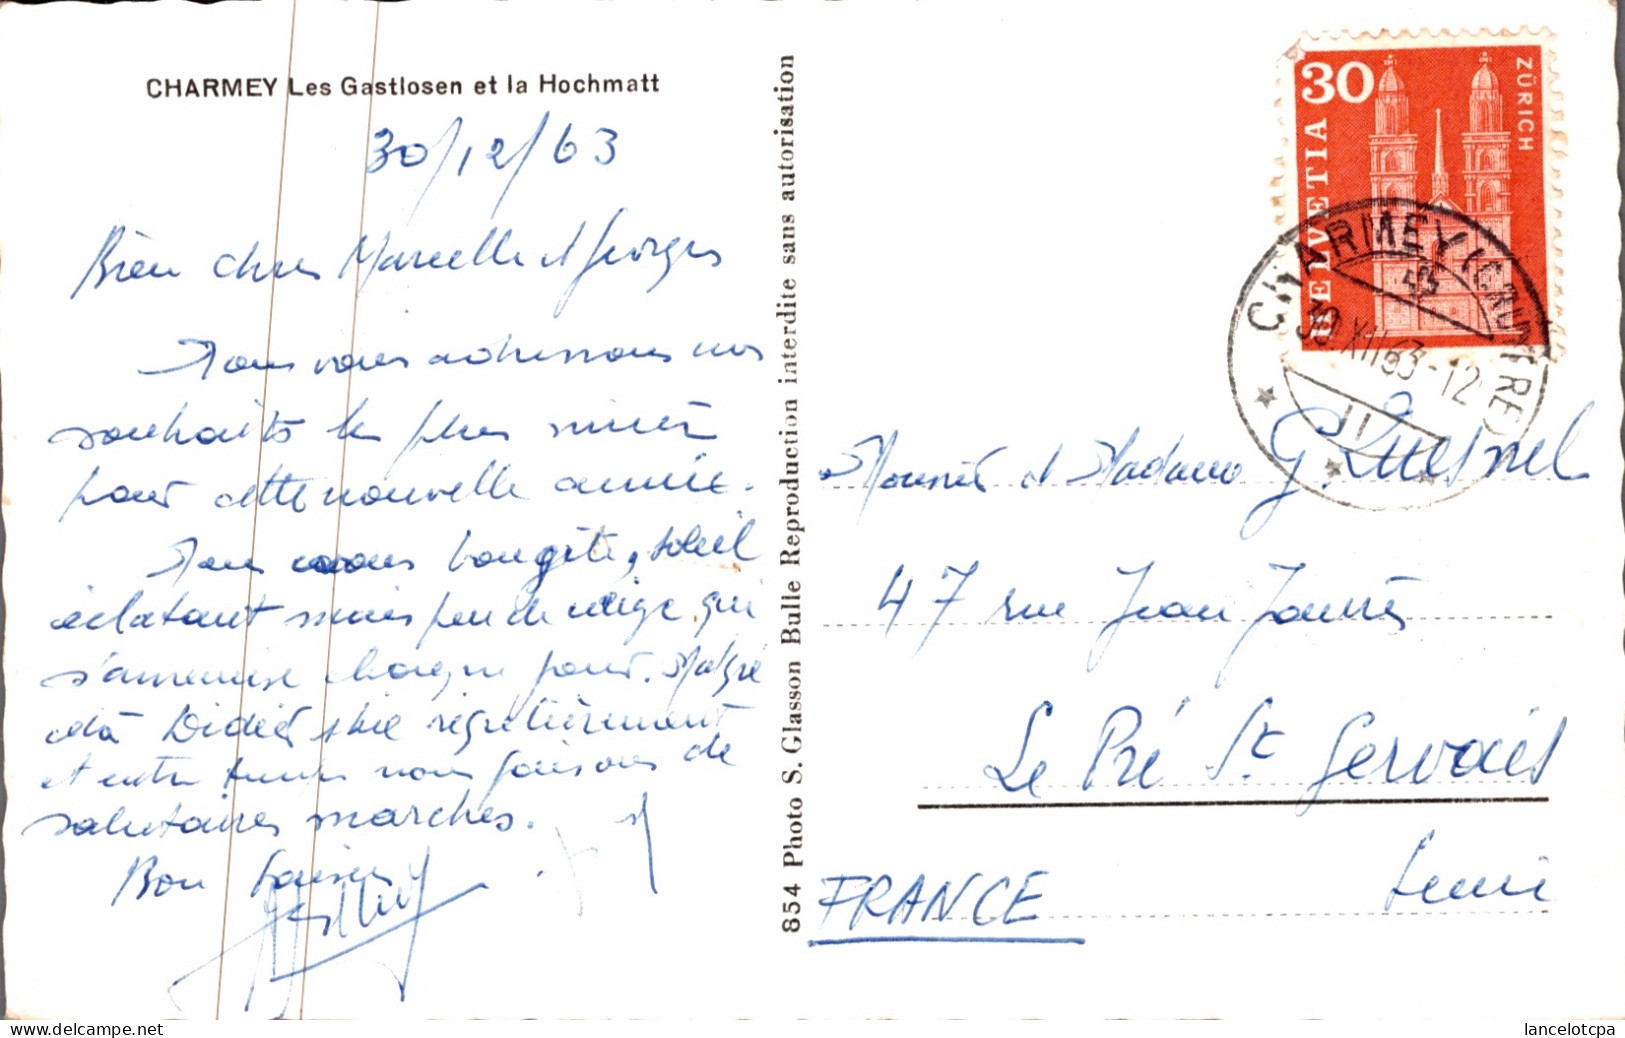 CHARMEY Les Gastlosen et la Hochmatt
30/12/63
Bien chers Marcelle et Georges
Nous vous adressons nos
souhaits les plus sincères
pour cette nouvelle année.
Nous avons bon gîte, soleil
éclatant mais peu de neige qui
s'amenuise chaque jour. Malgré
cela Didier skie régulièrement
et entre temps nous faisons de
salutaires marches.
Bon baisers
854 Photo S. Glasson Bulle Reproduction interdite sans autorisation
30
HELVETIA
ZÜRICH
CHARMEY (GRUYÈRE)
30.XII.63-12
Monsieur et Madame G. Quesnel
47 rue Jean Jaurès
Le Pré St Gervais
Seine
FRANCE
lancelotcpa.delcampe.net
lancelotcpa